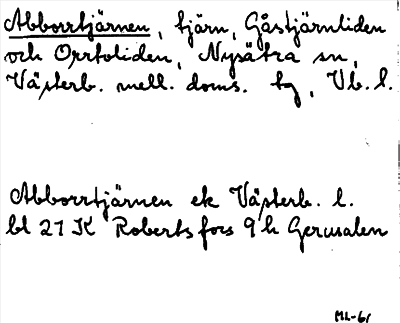 Abborrtjärnen, tjärn, Gåstjärnliden
och Orrtoliden, Nysätra sn,
Västerb. mell. doms. tg, Vb. l.
Abborrtjärnen ek Västerb. l.
bl 21 K Robertsfors 9 h Gerusalen
ML-61